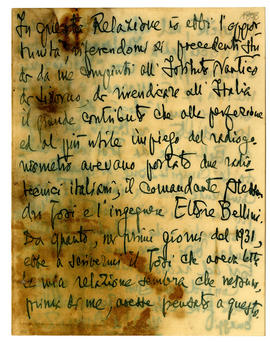 In questa Relazione io ebbi l'oppor
tunità, riferendomi ai precedenti stu
di da me compiuti all'Istituto Nautico
di Livorno, di rivendicare all'Italia
il grande contributo che alla perfezione
ed al più utile impiego del radiogo
niometro avevano portato due radio
tecnici italiani, il comandante Alessan
dro Tosi e l'ingegnere Ettore Bellini.
Da quanto, nei primi giorni del 1931,
ebbe a scrivermi il Tosi che aveva letto
la mia relazione sembra che nessuno,
prima di me, avesse pensato a questo